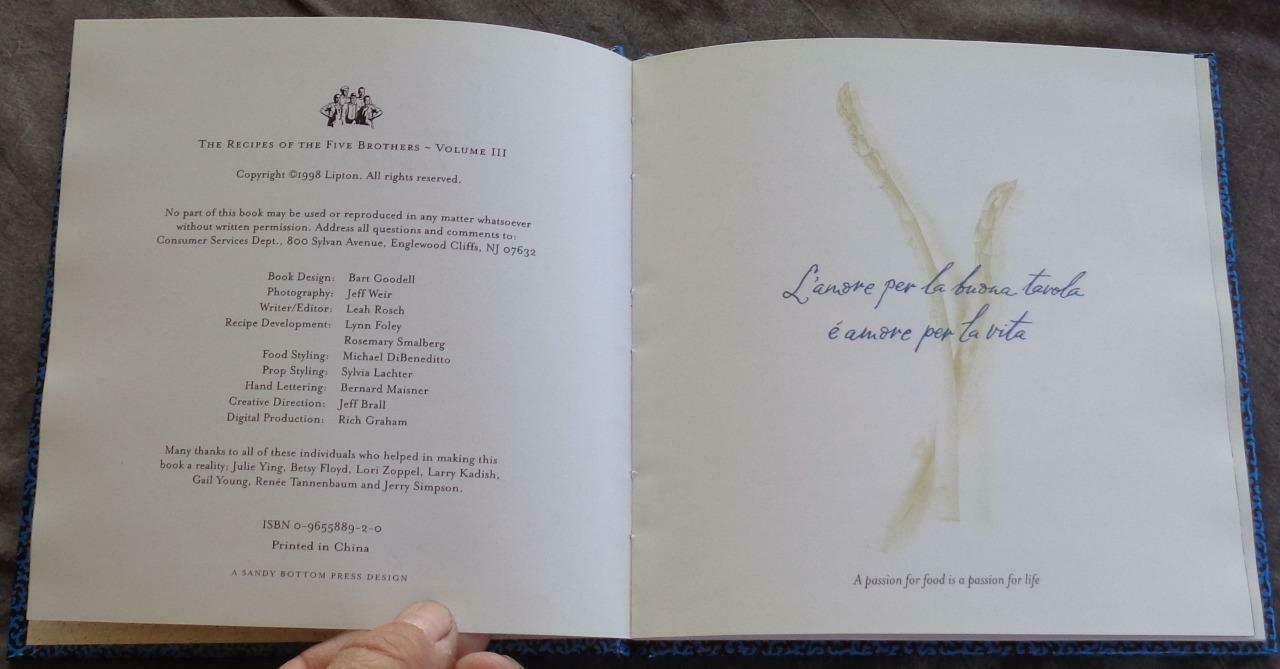 The Recipes of the Five Brothers ~ Volume III
Copyright ©1998 Lipton. All rights reserved.
No part of this book may be used or reproduced in any matter whatsoever
without written permission. Address all questions and comments to:
Consumer Services Dept., 800 Sylvan Avenue, Englewood Cliffs, NJ 07632
Book Design: Bart Goodell
Photography: Jeff Weir
Writer/Editor: Leah Rosch
Recipe Development: Lynn Foley
Rosemary Smalberg
Food Styling: Michael DiBeneditto
Prop Styling: Sylvia Lachter
Hand Lettering: Bernard Maisner
Creative Direction: Jeff Brall
Digital Production: Rich Graham
Many thanks to all of these individuals who helped in making this
book a reality: Julie Ying, Betsy Floyd, Lori Zoppel, Larry Kadish,
Gail Young, Renée Tannenbaum and Jerry Simpson.
ISBN 0-9655889-2-0
Printed in China
A SANDY BOTTOM PRESS DESIGN
L'amore per la buona tavola
é amore per la vita
A passion for food is a passion for life